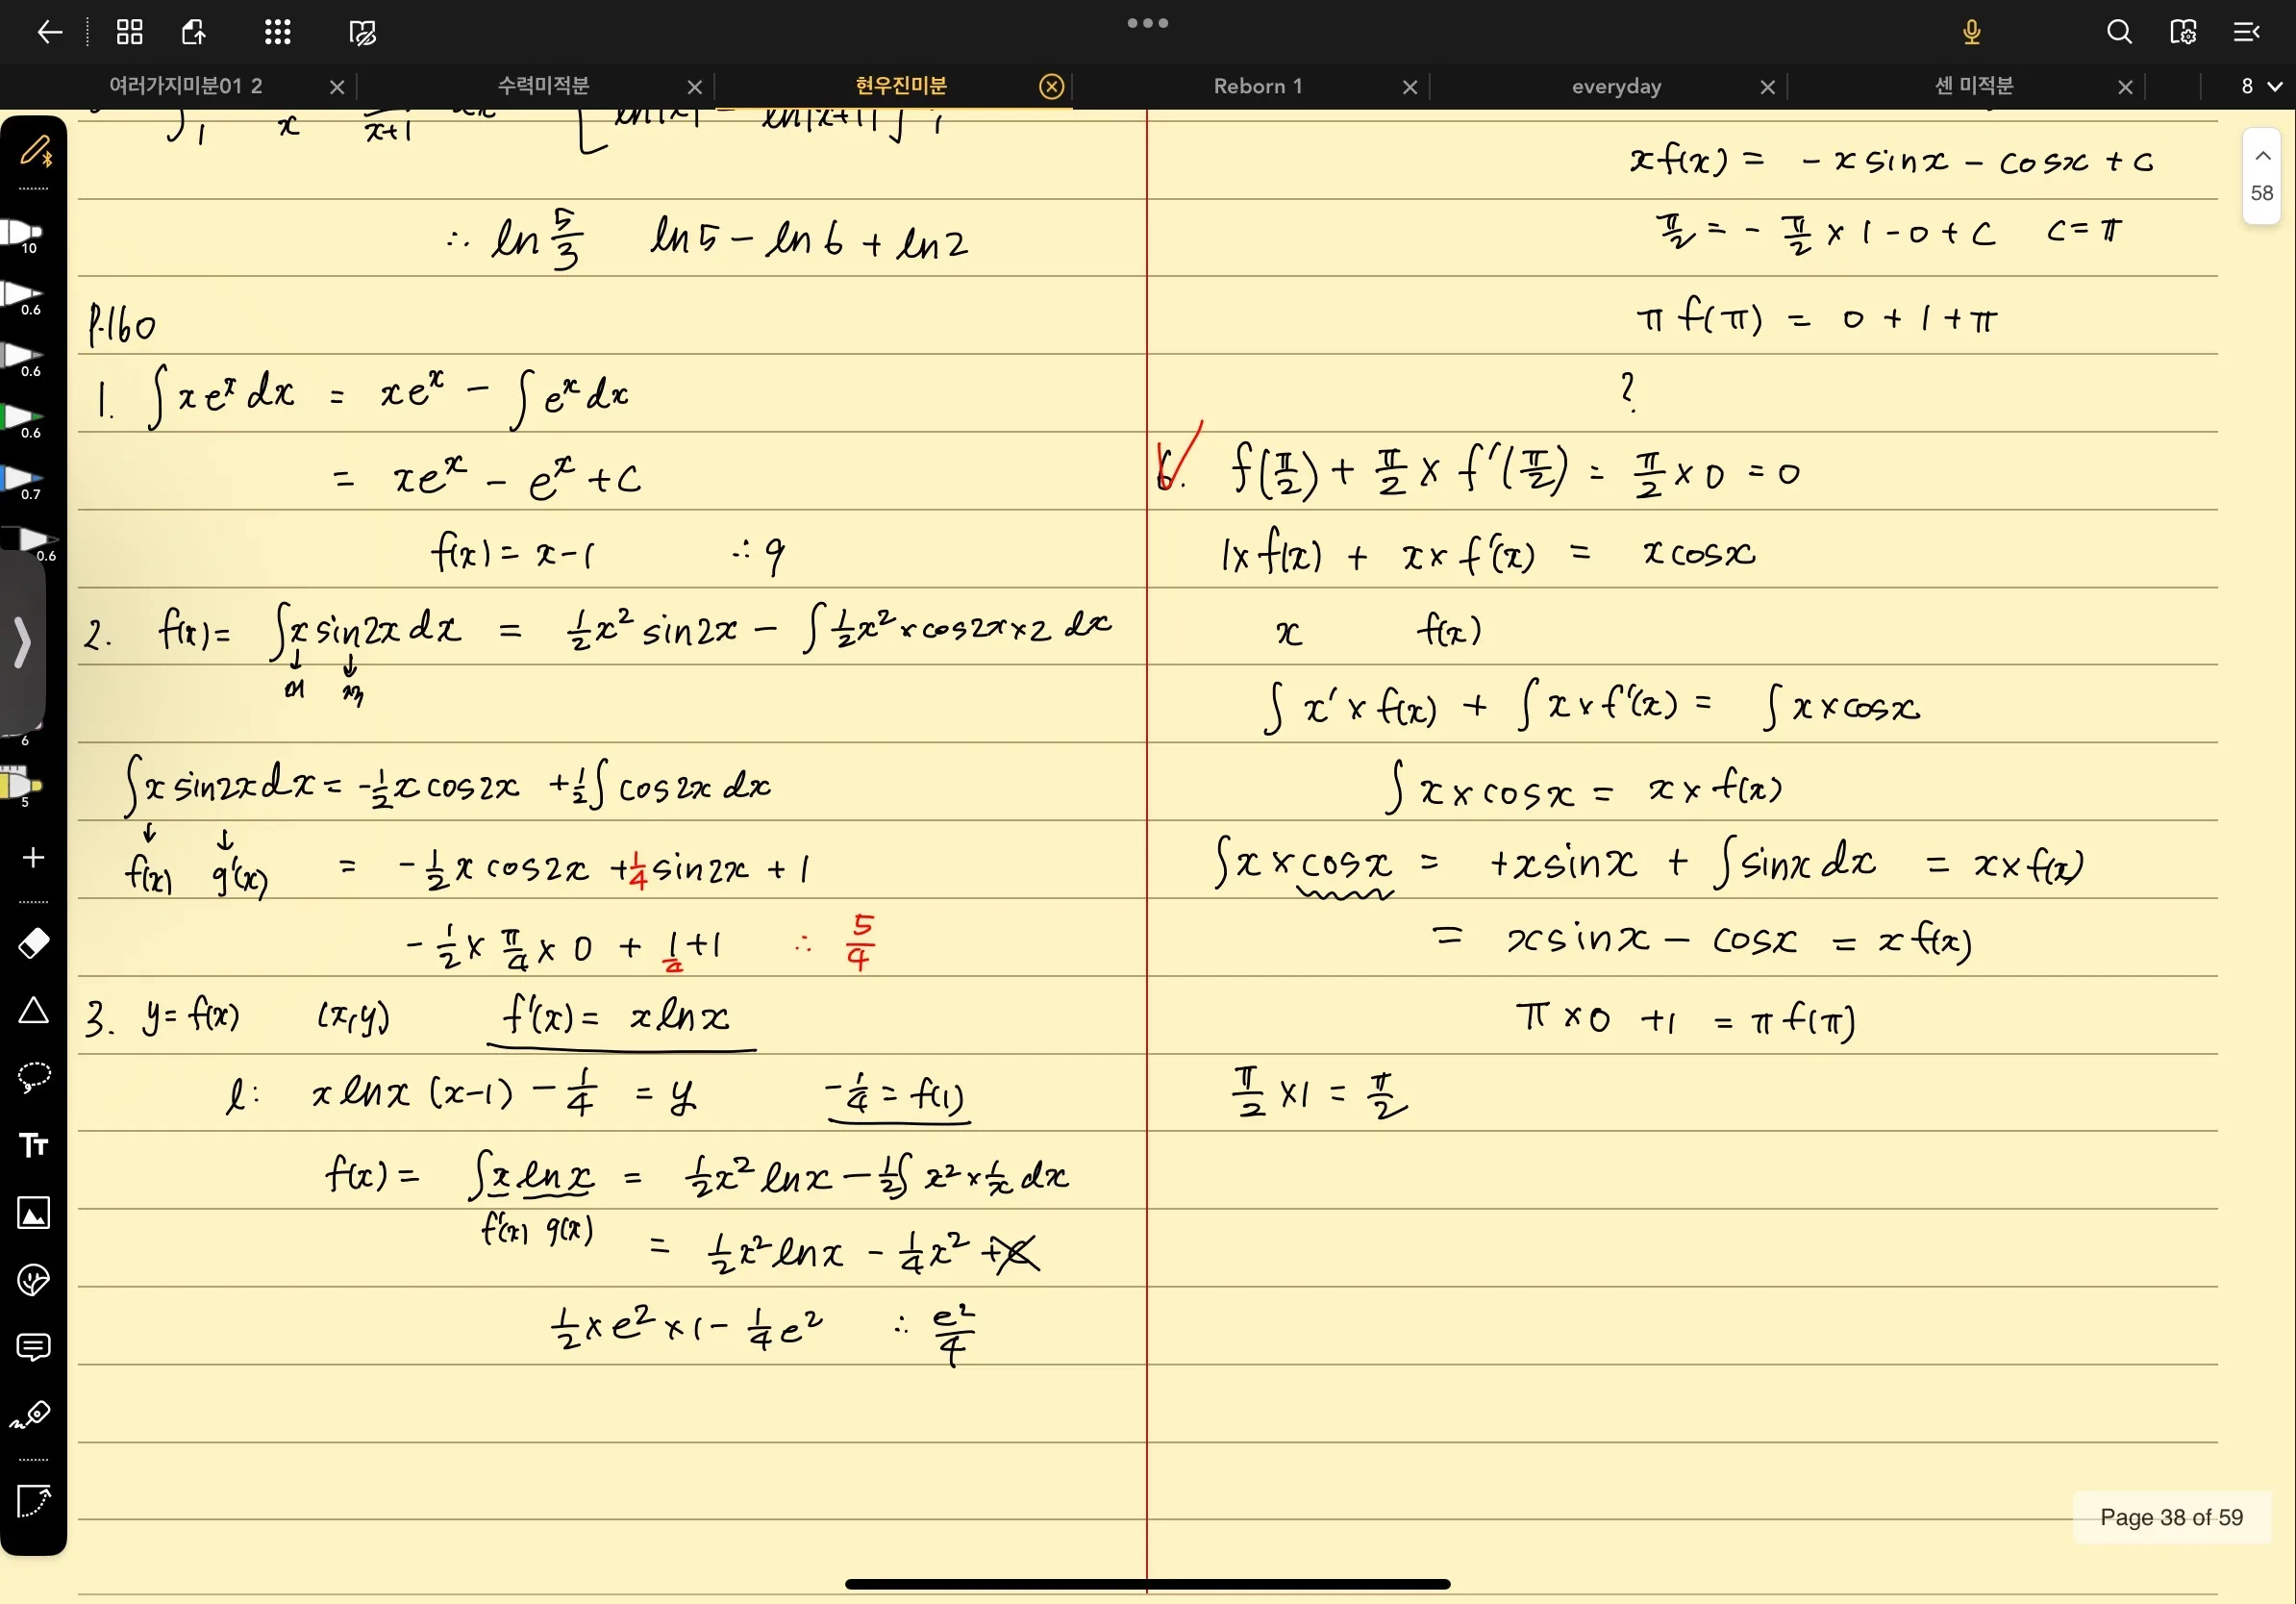 여러가지미분01 2
수력미적분
현우진미분
Reborn 1
everyday
센 미적분
8
10
0.6
0.6
0.6
0.7
0.6
6
5
Tт
∴ ln 5/3   ln5 - ln6 + ln2
P.160
1. ∫ x e^x dx = xe^x - ∫ e^x dx
= xe^x - e^x + C
f(x) = x-1   ∴ 9
2. f(x) = ∫ x sin2x dx = 1/2 x² sin2x - ∫ 1/2 x² × cos2x × 2 dx
∫ x sin2x dx = -1/2 x cos2x + 1/2 ∫ cos2x dx
f(x) g'(x) = -1/2 x cos2x + 1/4 sin2x + 1
-1/2 × π/4 × 0 + 1/4 + 1   ∴ 5/4
3. y = f(x)   (x, y)   f'(x) = x lnx
l: x lnx (x-1) - 1/4 = y   -1/4 = f(1)
f(x) = ∫ x lnx = 1/2 x² lnx - 1/2 ∫ x² × 1/x dx
f'(x) g(x)
= 1/2 x² lnx - 1/4 x² + C
1/2 × e² × 1 - 1/4 e²   ∴ e²/4
xf(x) = - x sinx - cosx + C
π/2 = - π/2 × 1 - 0 + C   C = π
π f(π) = 0 + 1 + π
?
6. f(π/2) + π/2 × f'(π/2) = π/2 × 0 = 0
1× f(x) + x × f'(x) = x cosx
x   f(x)
∫ x' × f(x) + ∫ x × f'(x) = ∫ x × cosx
∫ x × cosx = x × f(x)
∫ x × cosx = +xsinx + ∫ sinx dx = x × f(x)
= xsinx - cosx = x f(x)
π × 0 + 1 = π f(π)
π/2 × 1 = π/2
58
Page 38 of 59